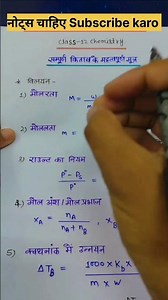 नोट्स चाहिए Subscribe karo
Class-12 Chemistry
सम्पूर्ण किताब के महत्वपूर्ण सूत्र
* विलयन -
1) मोलरता M = w
2) मोललता m =
3) राउल्ट का नियम
p° - ps / p° =
4) मोल अंश / मोल प्रभाज
xA = nA / nA + nB , xB
5) क्वथनांक में उन्नयन
ΔTb = 1000 × Kb × / m × W